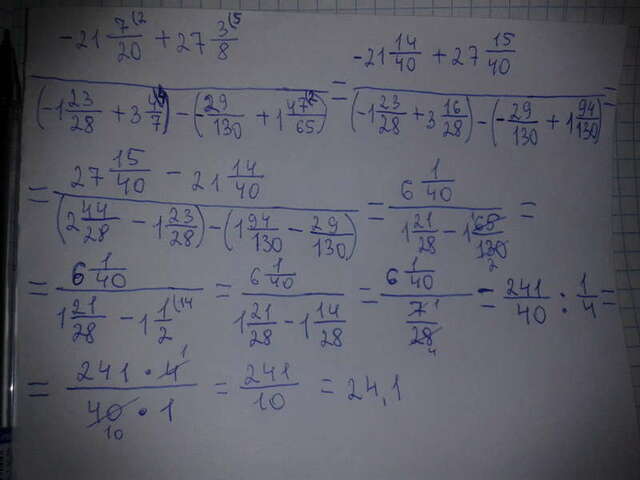 (-21 7/20 (2 + 27 3/8 (5) / ((-1 23/28 + 3 4/7 (4) - (29/130 + 1 47/65 (2)) = (-21 14/40 + 27 15/40) / ((-1 23/28 + 3 16/28) - (-29/130 + 1 94/130)) =
= (27 15/40 - 21 14/40) / ((2 44/28 - 1 23/28) - (1 94/130 - 29/130)) = (6 1/40) / (1 21/28 - 1 65 1/130 2) =
= (6 1/40) / (1 21/28 - 1 1/2 (14) = (6 1/40) / (1 21/28 - 1 14/28) = (6 1/40) / (7 1/28 4) = 241/40 : 1/4 =
= (241 · 4 1) / (40 10 · 1) = 241/10 = 24,1